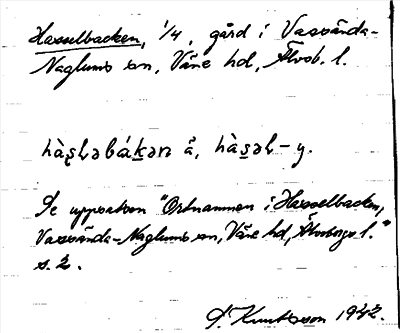 Hasselbacken, 1/4, gård i Vassända-
Naglums sn, Väne hd, Älvsb. l.
hàşləbákən å, hàsəl-y.
Se uppsatsen "Ortnamnen i Hasselbacken,
Vassända-Naglums sn, Väne hd, Älvsborgs l."
s. 2.
S. Knutsson 1942.